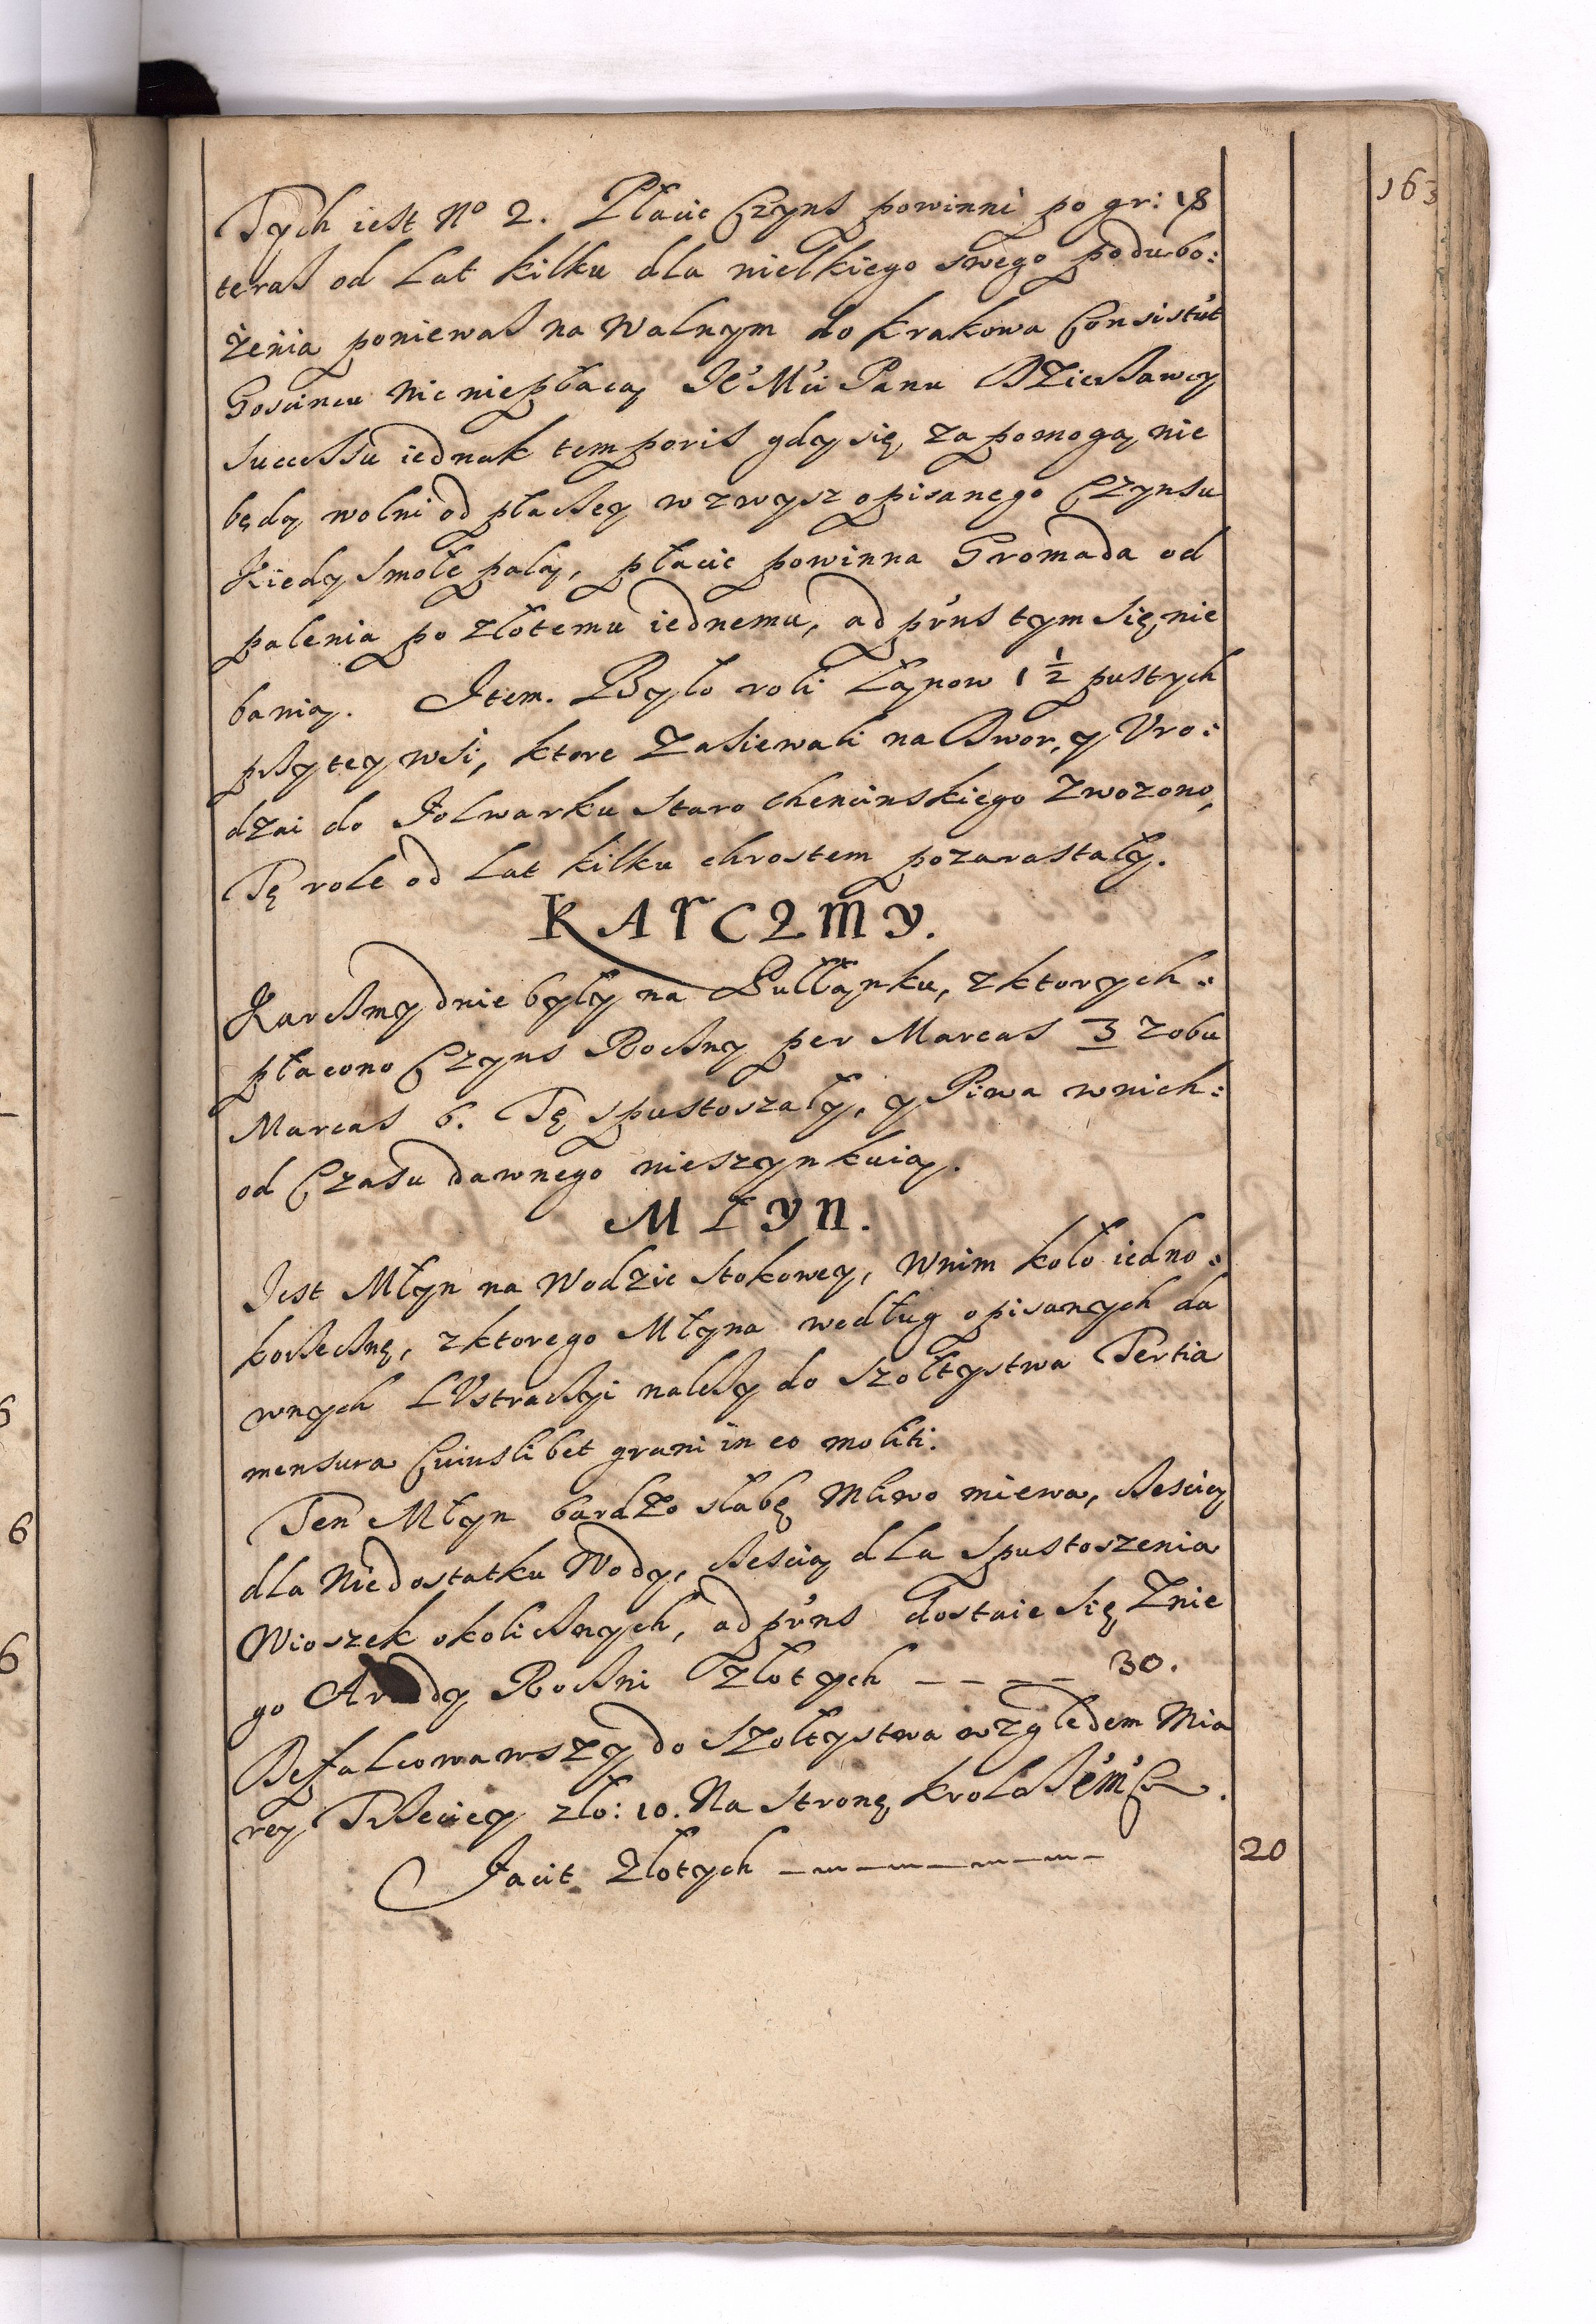 163
Tych iest No 2. Płacic Czyns powinni po gr: 18
teras od Lat kilku dla wielkiego swego podubo:
żenia poniewasz na Walnym do Krakowa Consistut
Goscincu nic niepłacą Jć Mći Panu Dzierżawcy
successu iednak temporis gdy się zapomogą nie
będą wolni od płacey wzwysz opisanego Czynsu
Kiedy smołę palą, płacic powinna Gromada od
palenia po złotemu iednemu, ad pŕns tym się nie
bawią. Item. Było roli Łanow 1 1/2 pustych
przytey wsi, ktore zasiewali na Dwor, y Vro:
dzai do Folwarku Staro chencinskiego zwozono,
Tę role od Lat kilku chrostem pozarastały.
KARCZMY.
Karczmy dwie były na Pułłanku, z ktorych:
płacono Czyns Roczny per Marcas 3 zobu
Marcas 6. Tę spustoszały, y Piwa wnich:
od Czasu dawnego nieszynkuią.
MŁYN.
Jest Młyn na Wodzie stokowey, Wnim koło iedno:
korzeczne, z ktorego Młyna według opisanych da
wnych LVstraczyi należy do szołtystwa Tertia
mensura Cuiuslibet grani in eo moliti.
Ten Młyn bardzo słabę Mliwo miewa, częscią
dla Niedostatku Wody, częscią dla Spustoszenia
Wioszek okolicznych, ad pŕns dostaie się Znie
go Arędy Roczni Złotych _ _ _ _ 30.
Defalcowawszy do Szołtystwa względem Mia
rey Trzeciey zło: 10. Na stronę krola
Facit Złotych 20